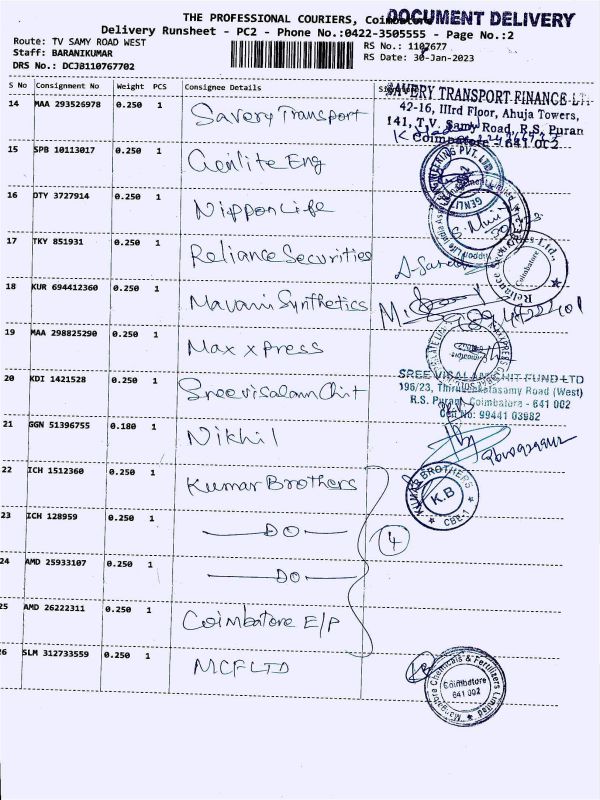 THE PROFESSIONAL COURIERS, Coimbatore
DOCUMENT DELIVERY
Delivery Runsheet - PC2 - Phone No.:0422-3505555 - Page No.:2
Route: TV SAMY ROAD WEST
Staff: BARANIKUMAR
DRS No.: DCJB110767702
RS No.: 1107677
RS Date: 30-Jan-2023
S No Consignment No Weight PCS Consignee Details
14 MAA 293526978 0.250 1 Savery Transport
SAVERY TRANSPORT FINANCE LTD
42-16, IIIrd Floor, Ahuja Towers,
141, T.V. Samy Road, R.S. Puran
Coimbatore - 641 002
15 SPB 10113017 0.250 1 Genlite Eng
16 DTY 3727914 0.250 1 Nippon Life
17 TKY 851931 0.250 1 Reliance Securities
Coimbatore
18 KUR 694412360 0.250 1 Mavani Synthetics
19 MAA 298825290 0.250 1 Max xpress
20 KDI 1421528 0.250 1 Sreevisalam Chit
SREE VISALAM CHIT FUND LTD
196/23, Thiruvenkatasamy Road (West)
R.S. Puram, Coimbatore - 641 002
Cell No: 99441 03982
21 GGN 51396755 0.180 1 Nikhil
22 ICH 1512360 0.250 1 Kumar Brothers
KUMAR BROTHERS
K.B
CBE-1
23 ICH 128959 0.250 1 DO
4
24 AMD 25933107 0.250 1 DO
25 AMD 26222311 0.250 1 Coimbatore E/P
26 SLM 312733559 0.250 1 MCF LTD
Mangalore Chemicals & Fertilizers Limited
Coimbatore
641 002